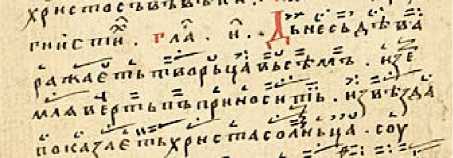 христосъвъвѣкы
гнистин̑. гла. и҃. Дьнесьдѣва
ражаѥтьтворьцавьсѣмъ. изе
млявьртьпъприносить. извѣзда
показаѥтьхристасолньца. соу